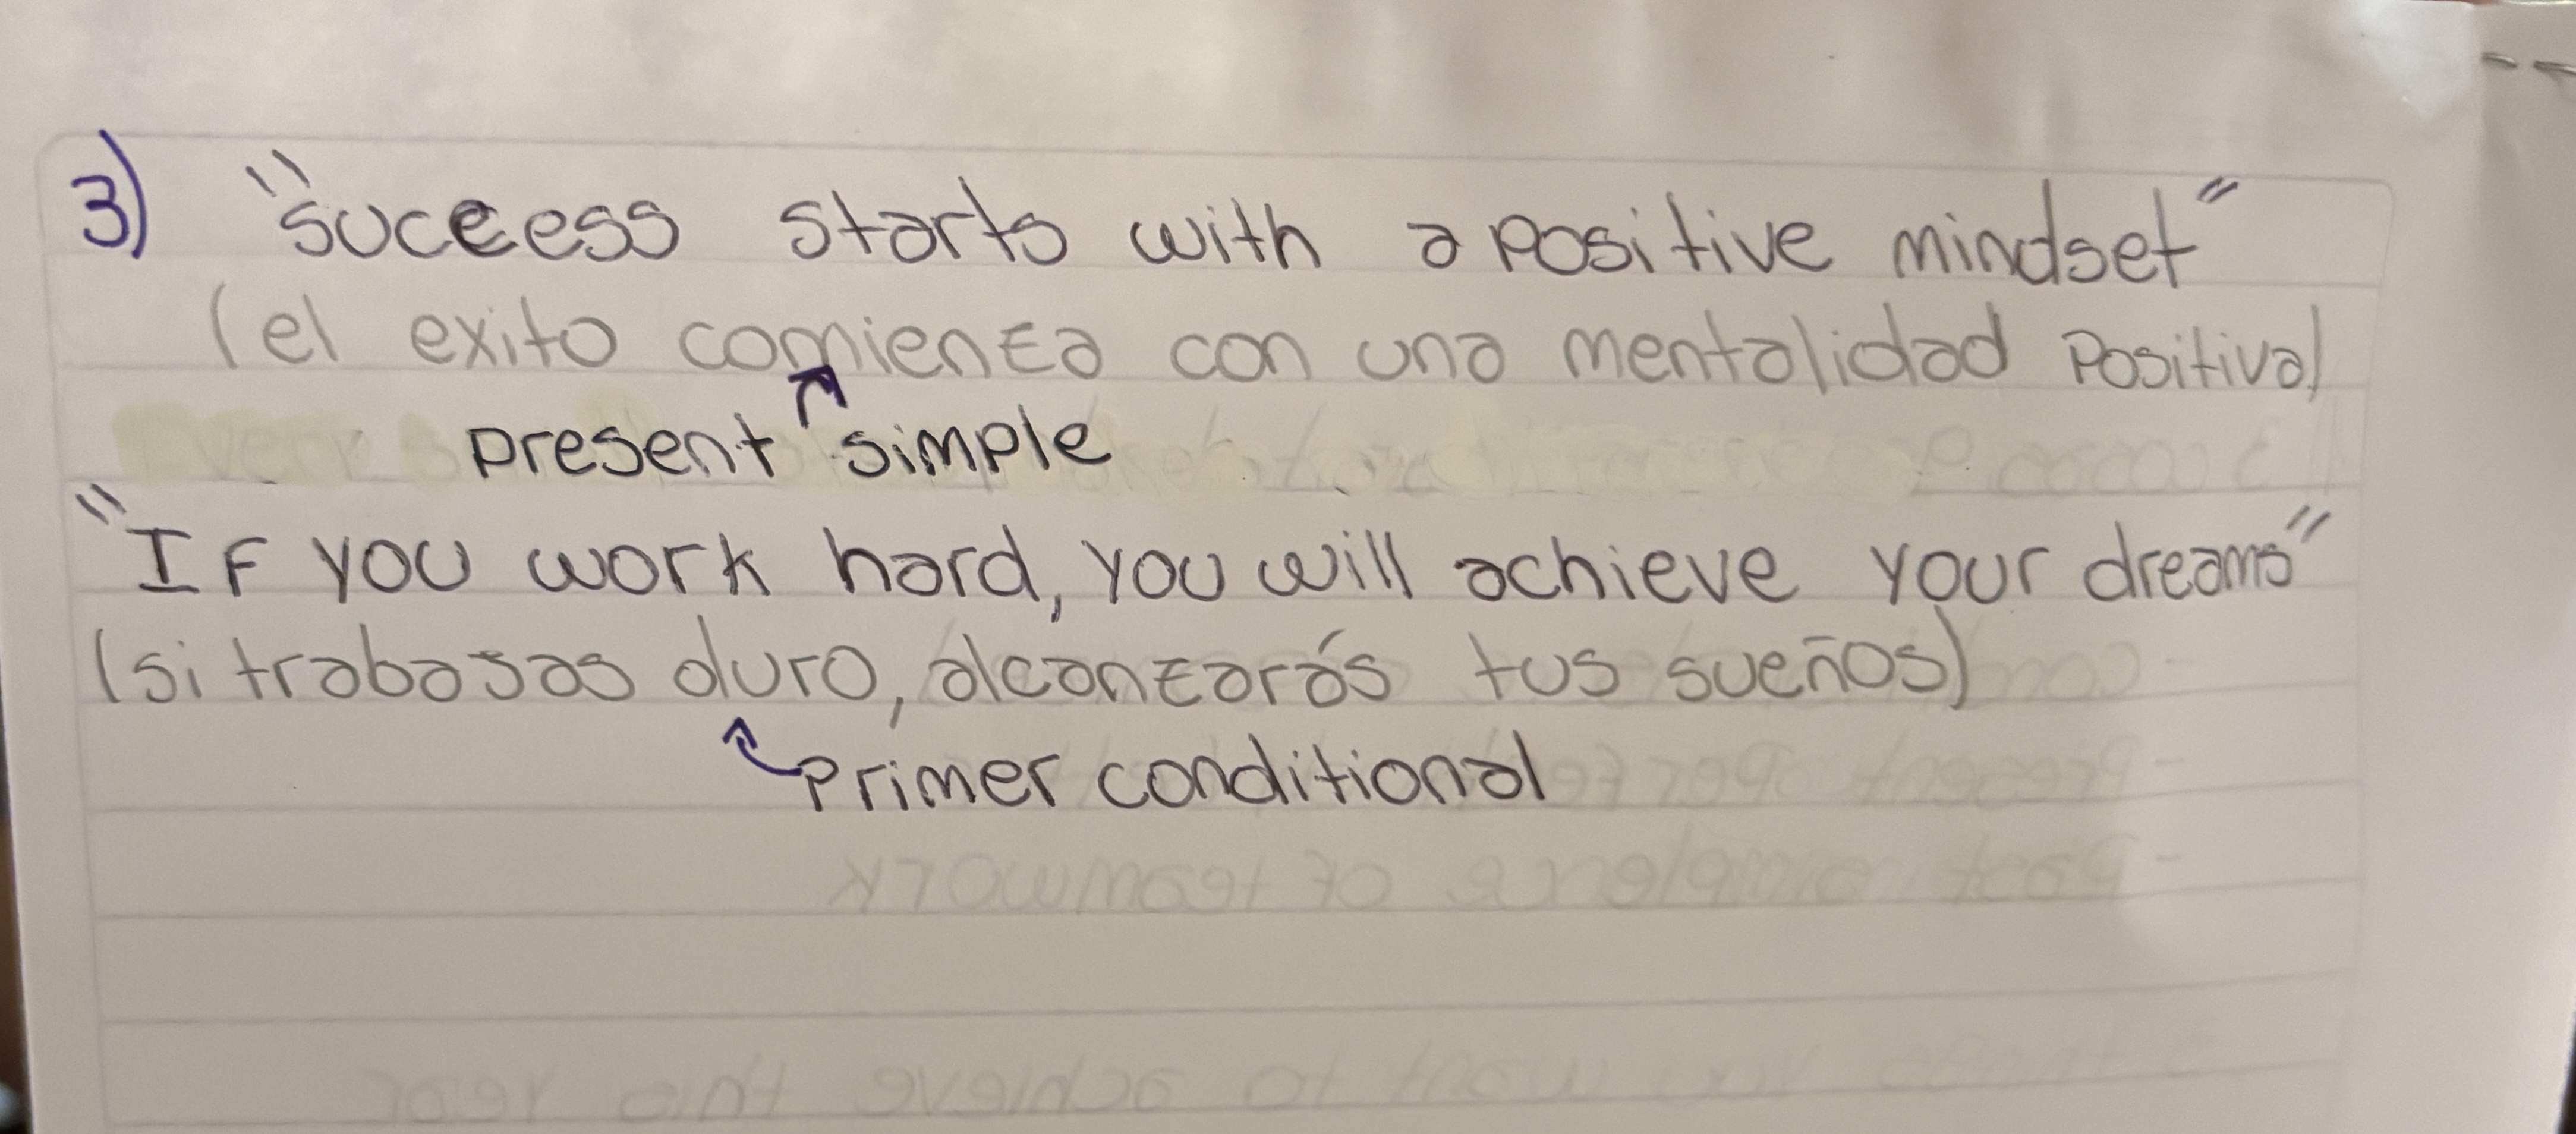 3) "Suceess starts with a positive mindset"
(el exito comienza con una mentalidad Positiva)
present simple
"If you work hard, you will achieve your dreams"
(si trabajas duro, alcanzarás tus sueños)
Primer conditional